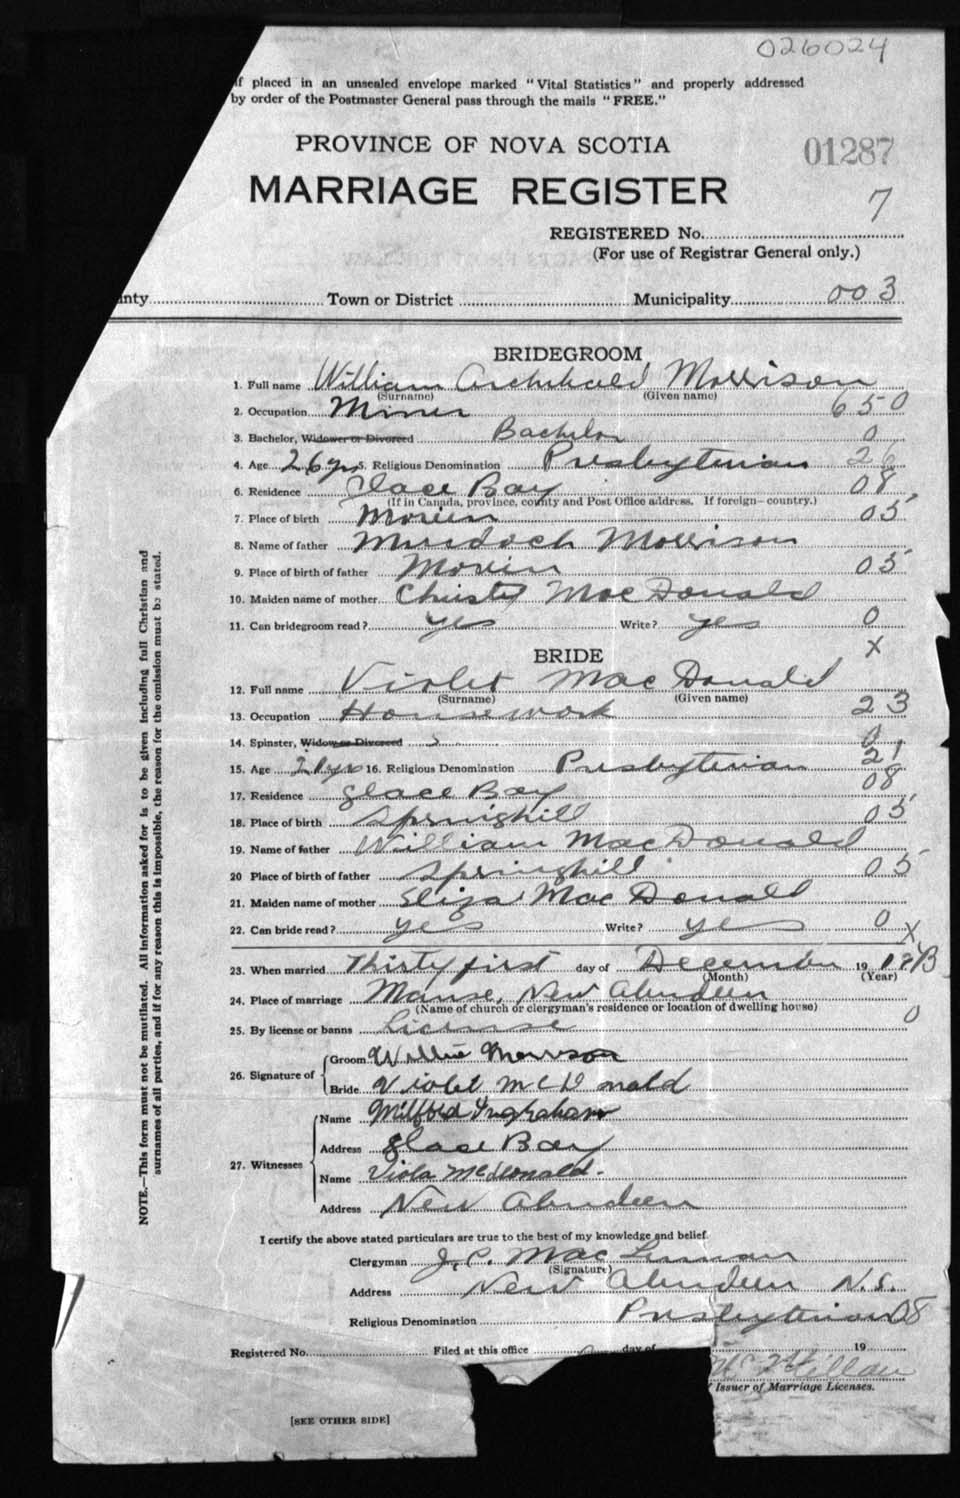 026024
if placed in an unsealed envelope marked "Vital Statistics" and properly addressed
by order of the Postmaster General pass through the mails "FREE."
PROVINCE OF NOVA SCOTIA
01287
MARRIAGE REGISTER
7
REGISTERED No.
(For use of Registrar General only.)
unty Town or District Municipality 003
BRIDEGROOM
1. Full name William Archibald Morrison
(Surname) (Given name)
2. Occupation Miner 650
3. Bachelor, Widower or Divorced Bachelor 0
4. Age 26 yrs 5. Religious Denomination Presbyterian 26
6. Residence Glace Bay 08
(If in Canada, province, county and Post Office address. If foreign—country.)
7. Place of birth Morien 05
8. Name of father Murdoch Morrison
9. Place of birth of father Morien 05
10. Maiden name of mother Christy MacDonald
11. Can bridegroom read? yes Write? yes 0
X
BRIDE
12. Full name Violet MacDonald
(Surname) (Given name)
13. Occupation Housework 23
14. Spinster, Widow or Divorced S 0
15. Age 21 yrs 16. Religious Denomination Presbyterian 21
17. Residence Glace Bay 08
18. Place of birth Springhill 05
19. Name of father William MacDonald
20 Place of birth of father Springhill 05
21. Maiden name of mother Eliza MacDonald
22. Can bride read? yes Write? yes 0 X
23. When married Thirty first day of December 19
(Month) (Year)
24. Place of marriage Manse, New Aberdeen
(Name of church or clergyman's residence or location of dwelling house)
25. By license or banns License 0
26. Signature of Groom Willie Morrison
Bride Violet McDonald
27. Witnesses Name Milford Ingraham
Address Glace Bay
Name Viola McDonald.
Address New Aberdeen
I certify the above stated particulars are true to the best of my knowledge and belief.
Clergyman J. C. MacLennan
(Signature)
Address New Aberdeen N.S.
Religious Denomination Presbyterian 08
Registered No. Filed at this office day of 19
McMillan
Issuer of Marriage Licenses.
[SEE OTHER SIDE]
NOTE.—This form must not be mutilated. All information asked for is to be given including full Christian and
surnames of all parties, and if for any reason this is impossible, the reason for the omission must be stated.